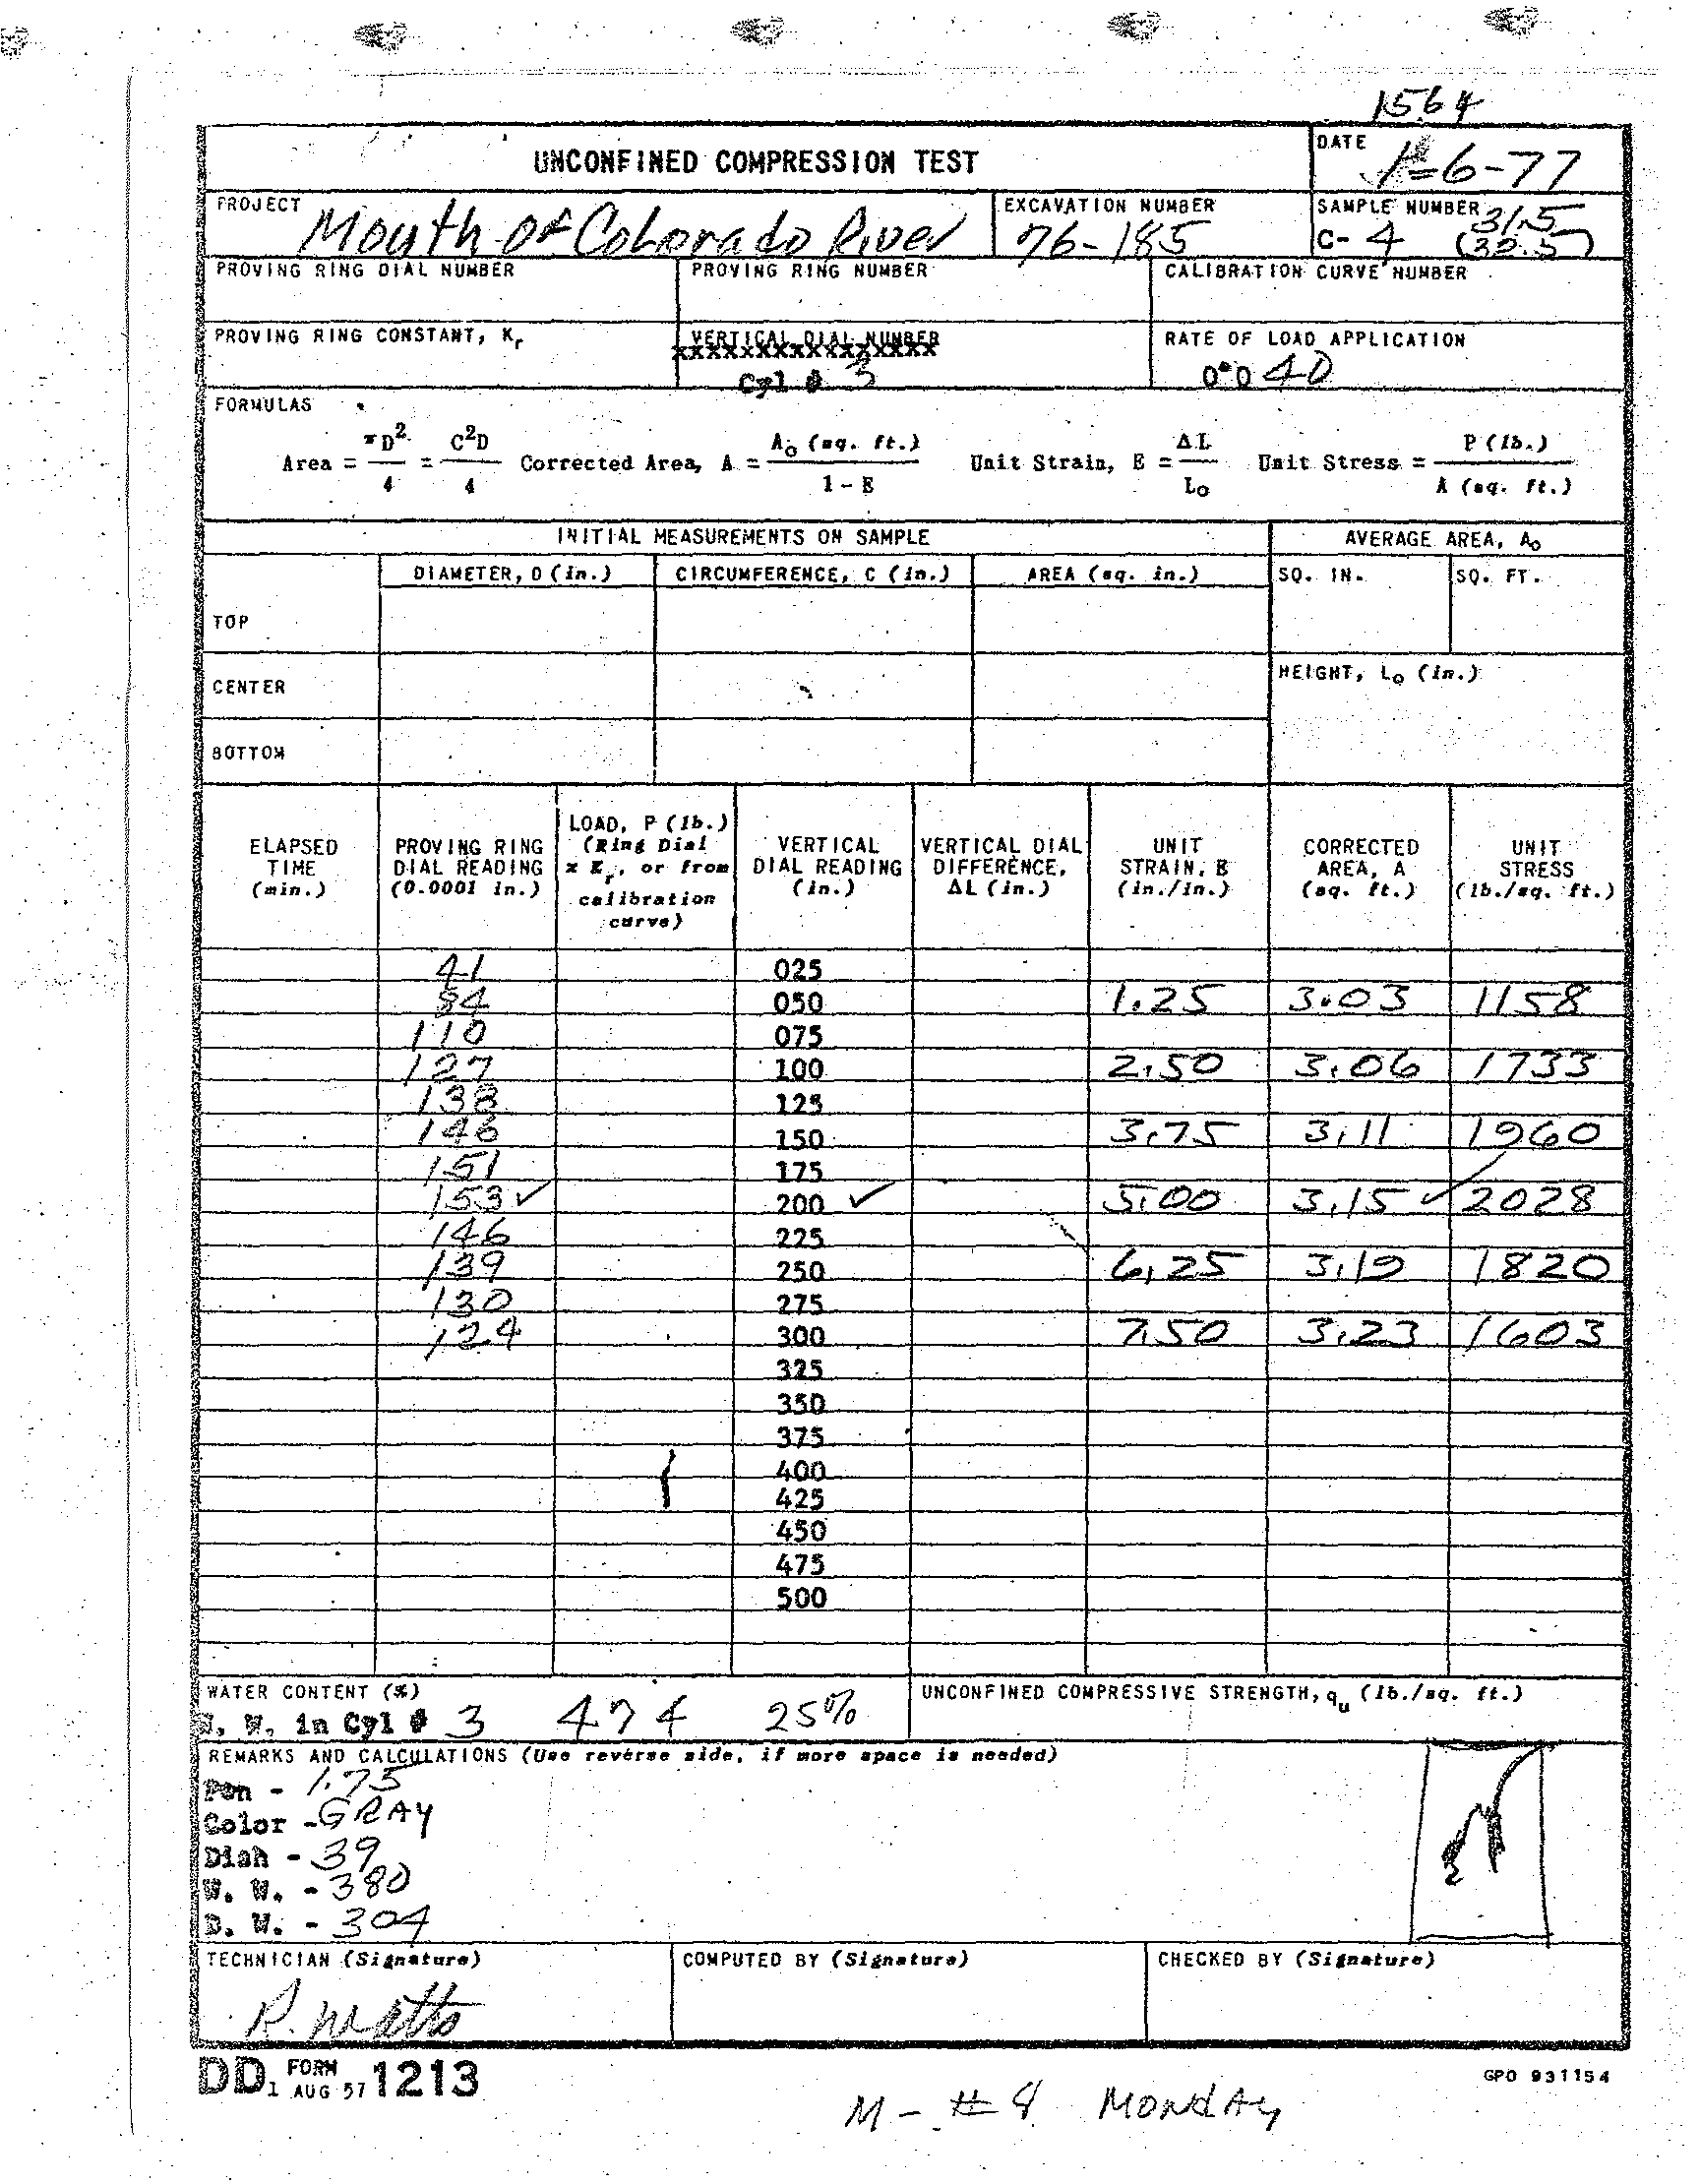 1564
UNCONFINED COMPRESSION TEST
DATE
1-6-77
PROJECT
Mouth of Colorado River
EXCAVATION NUMBER
76-185
SAMPLE NUMBER 31.5
C- 4 (32.5)
PROVING RING DIAL NUMBER
PROVING RING NUMBER
CALIBRATION CURVE NUMBER
PROVING RING CONSTANT, Kr
VERTICAL DIAL NUMBER
XXXXXXXXXXXXXXXX
Cyl # 3
RATE OF LOAD APPLICATION
0.040
FORMULAS
Area = πD²/4 = C²D/4 Corrected Area, A = A₀ (sq. ft.)/1 - E Unit Strain, E = ΔL/L₀ Unit Stress = P (lb.)/A (sq. ft.)
INITIAL MEASUREMENTS ON SAMPLE
AVERAGE AREA, A₀
DIAMETER, D (in.) CIRCUMFERENCE, C (in.) AREA (sq. in.) SQ. IN. SQ. FT.
TOP
CENTER
HEIGHT, L₀ (in.)
BOTTOM
ELAPSED TIME (min.)
PROVING RING DIAL READING (0.0001 in.)
LOAD, P (lb.) (Ring Dial x Kr, or from calibration curve)
VERTICAL DIAL READING (in.)
VERTICAL DIAL DIFFERENCE, ΔL (in.)
UNIT STRAIN, E (in./in.)
CORRECTED AREA, A (sq. ft.)
UNIT STRESS (lb./sq. ft.)
41 025
84 050 1.25 3.03 1158
110 075
127 100 2.50 3.06 1733
138 125
146 150 3.75 3.11 1960
151 175
153 ✓ 200 ✓ 5.00 3.15 ✓ 2028
146 225
139 250 6.25 3.19 1820
130 275
124 300 7.50 3.23 1603
325
350
375
400
425
450
475
500
WATER CONTENT (%)
W. W. in Cyl # 3 474 25%
UNCONFINED COMPRESSIVE STRENGTH, qu (lb./sq. ft.)
REMARKS AND CALCULATIONS (Use reverse side, if more space is needed)
Pen - 1.75
Color - GRAY
Dish - 39
W. W. - 380
D. W. - 304
TECHNICIAN (Signature)
R. Watts
COMPUTED BY (Signature)
CHECKED BY (Signature)
DD FORM 1 AUG 57 1213
GPO 931154
M - #8 MONDAY